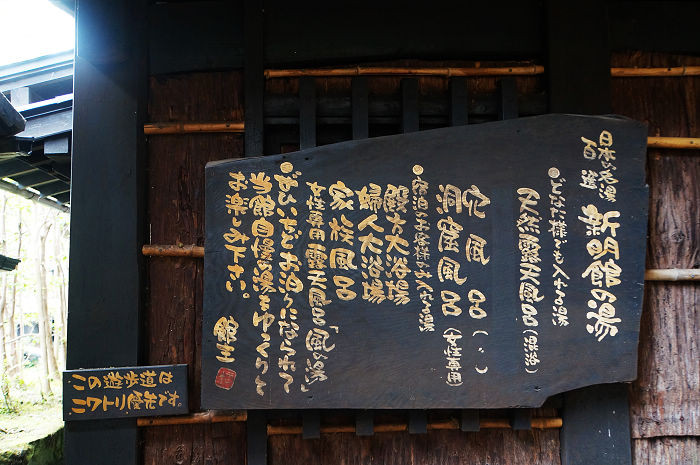 日本名湯百選
新明館の湯
●どなた様でも入れる湯
天然露天風呂(混浴)
●宿泊のお客様のみ入れる湯
穴風呂(〃)
洞窟風呂(女性専用)
殿方大浴場
婦人大浴場
家族風呂
女性専用露天風呂「風の湯」
●ぜひいちどお泊りになられて
当館自慢の湯をゆっくりと
お楽しみ下さい。
館主
この遊歩道は
ニワトリ優先です。